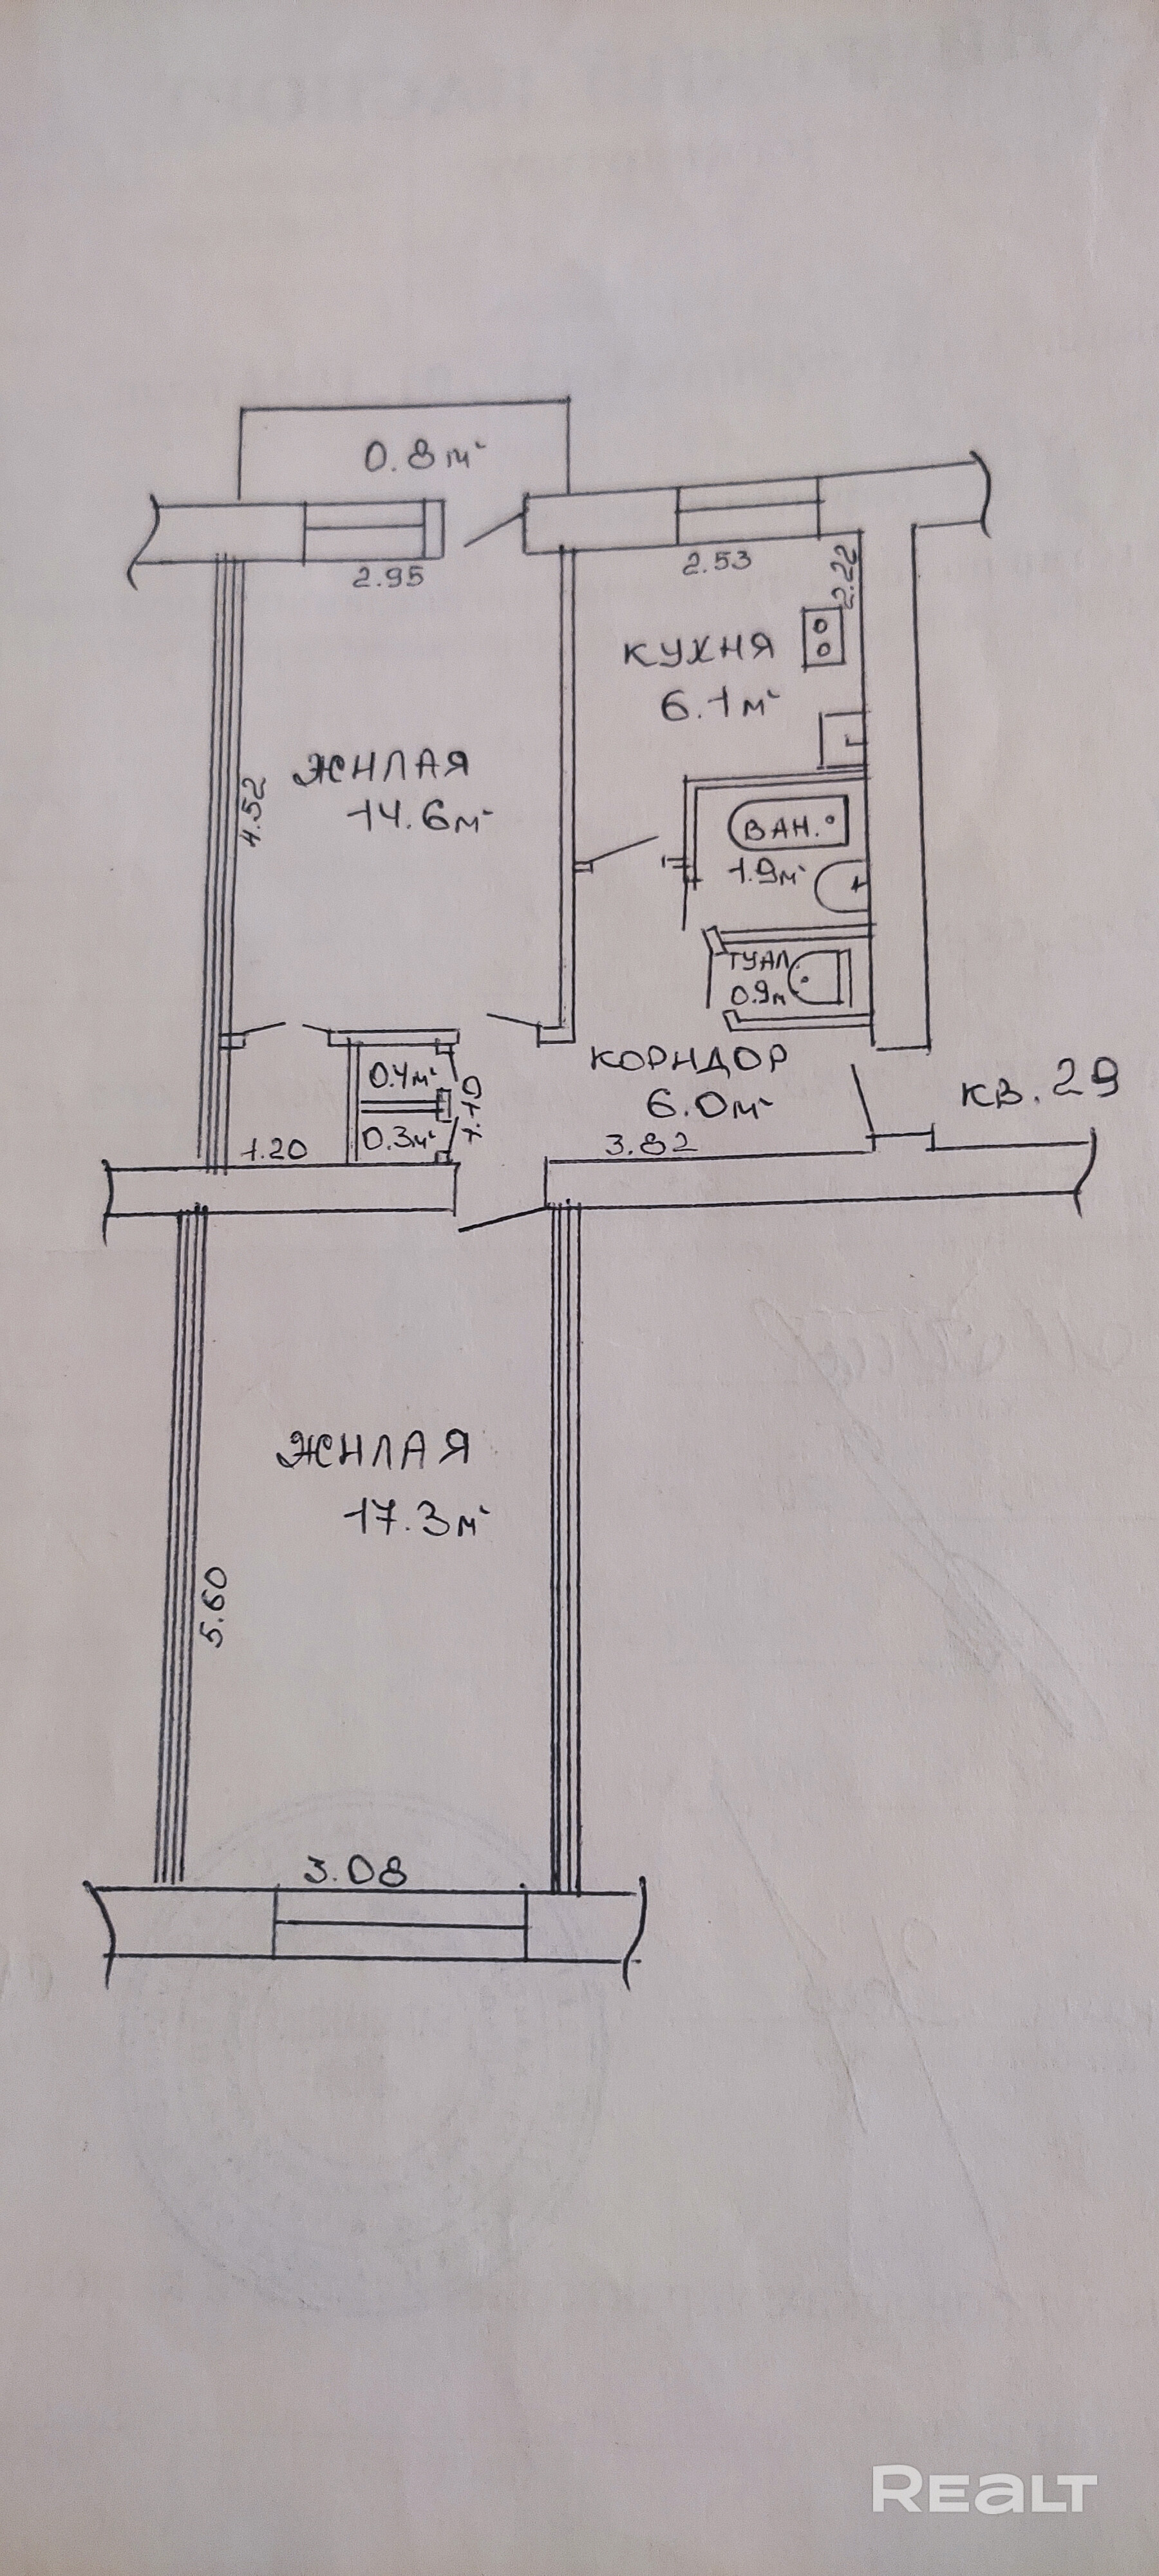 0.8м²
2.95
2.53
2.22
КУХНЯ
6.1м²
ЖИЛАЯ
14.6м²
4.52
ВАН.
1.9м²
ТУАЛ
0.9м
КОРИДОР
6.0м²
КВ. 29
0.4м²
0.3м²
1.20
3.82
ЖИЛАЯ
17.3м²
5.60
3.08
REALT